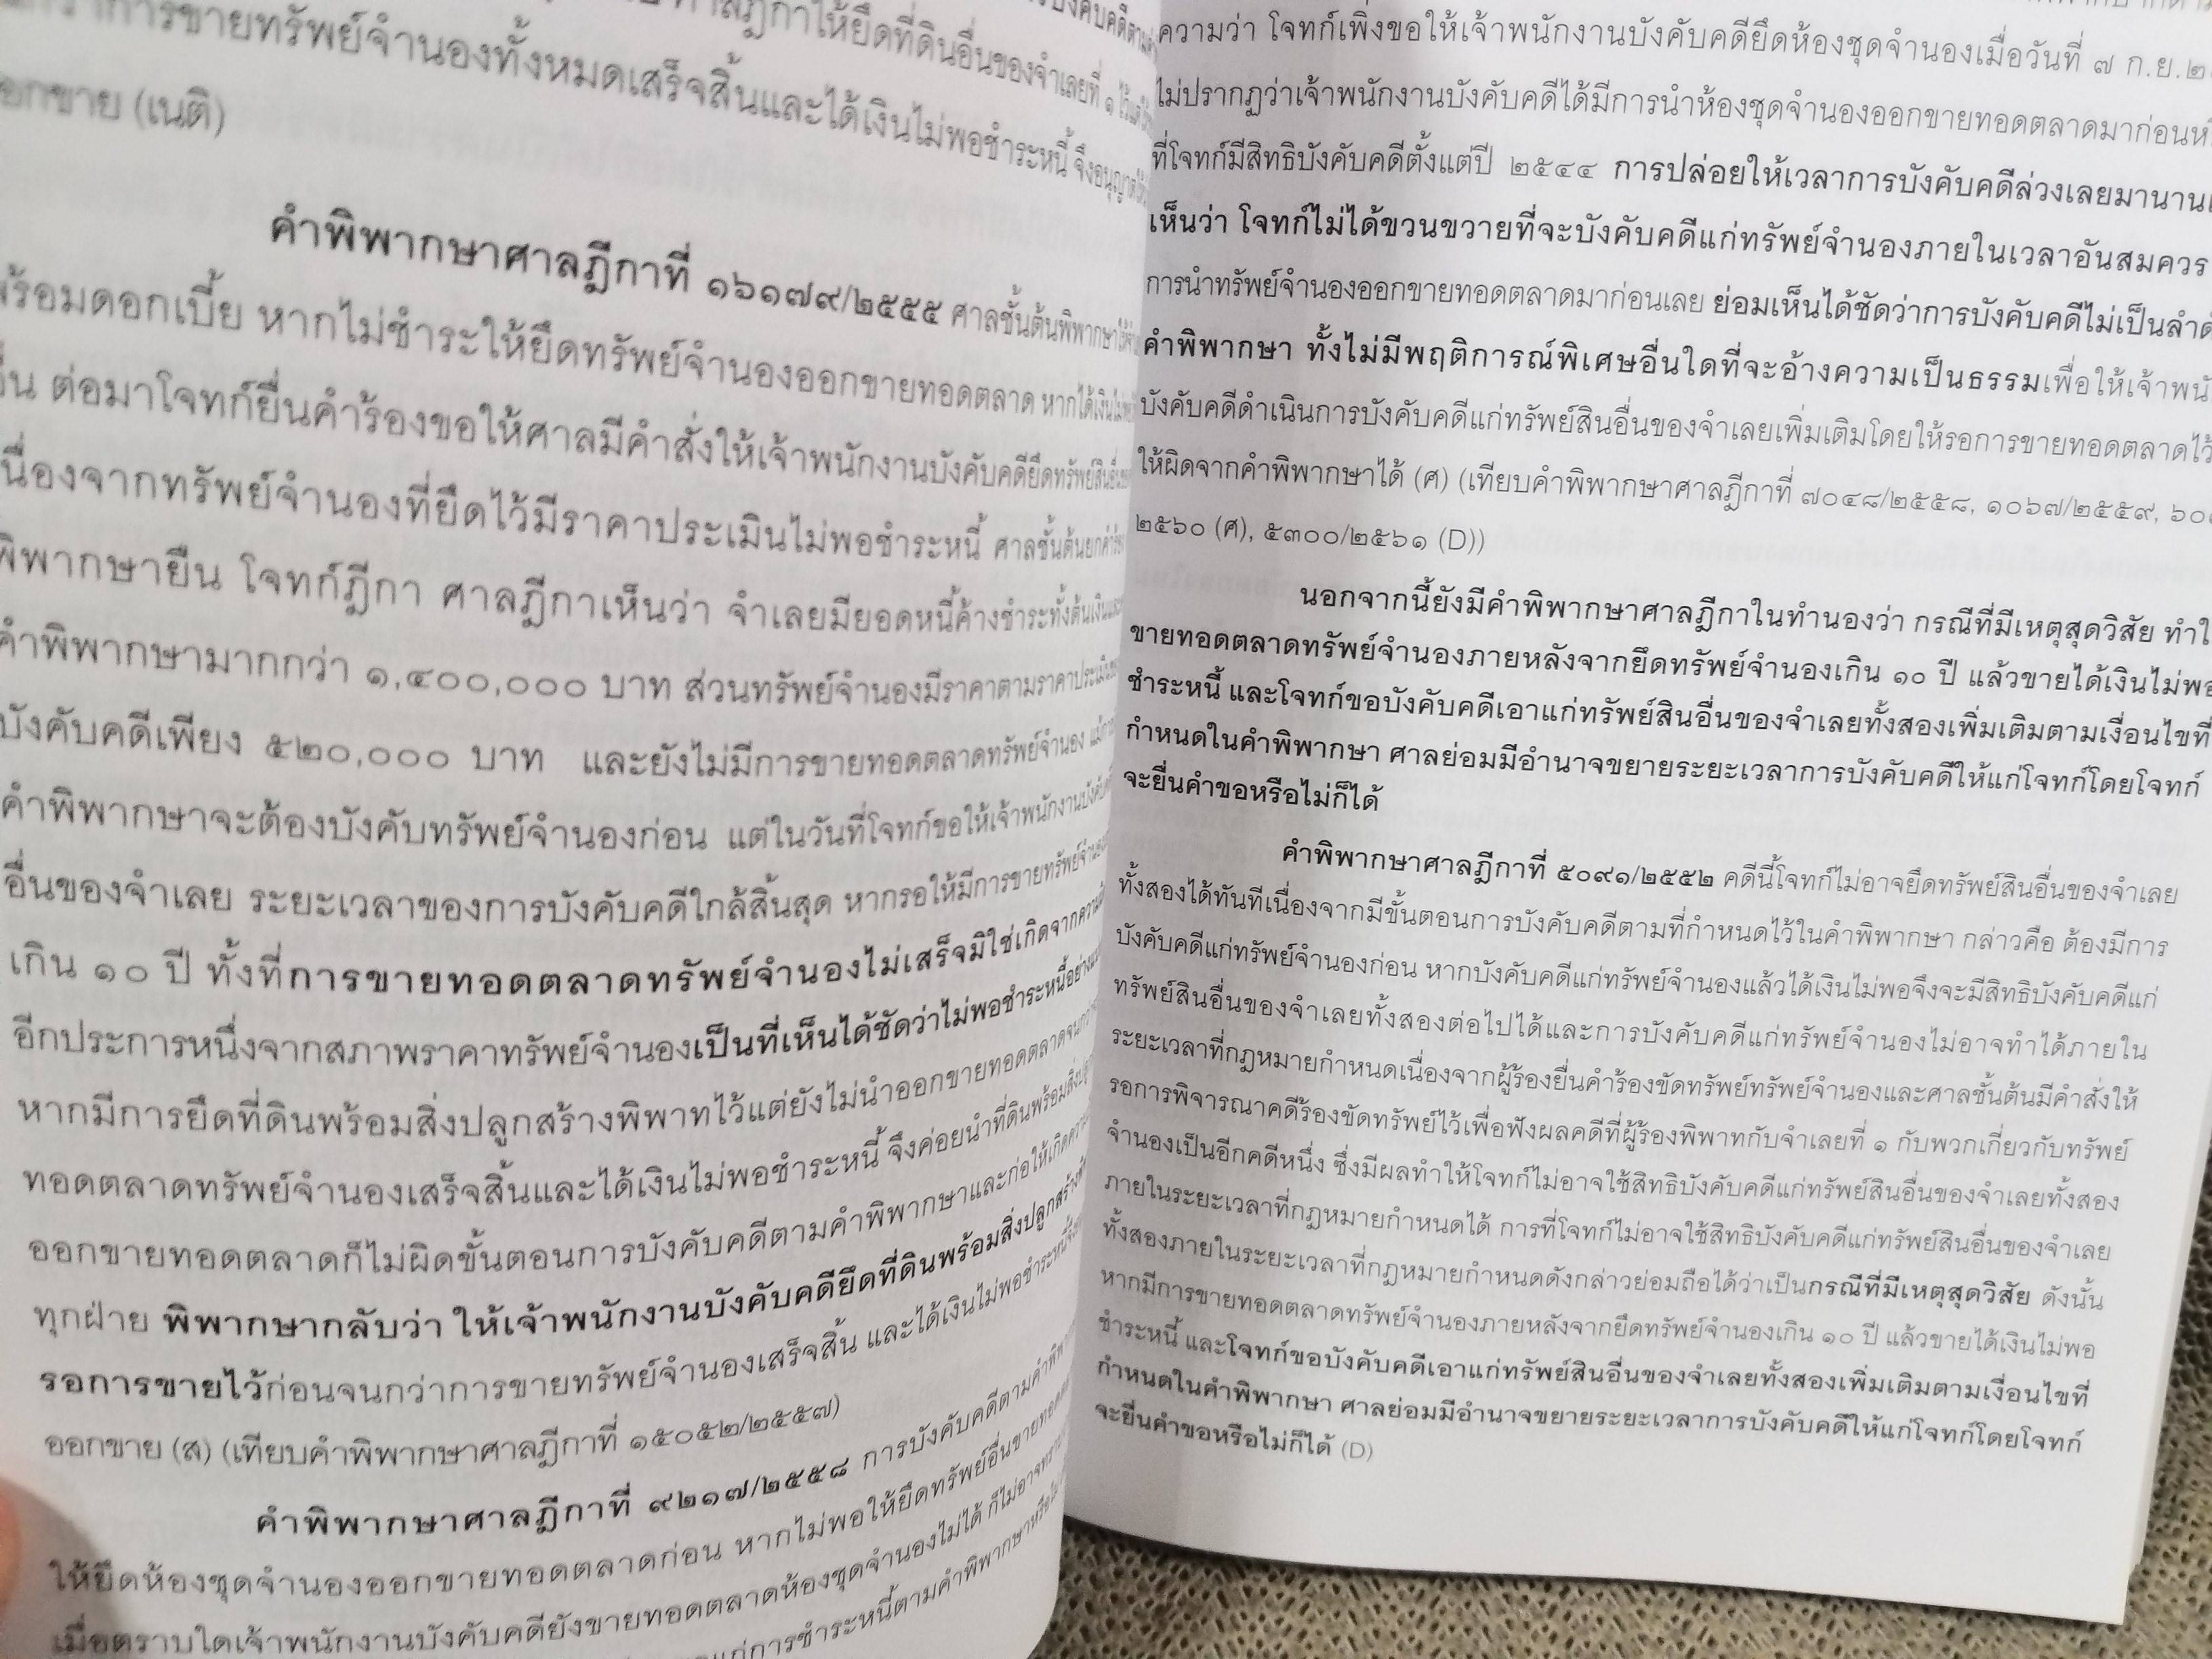 ศาลฎีกาให้ยึดที่ดินอื่นของจำเลยที่ ๑ ไว้แต่ให้
ว่าการขายทรัพย์จำนองทั้งหมดเสร็จสิ้นและได้เงินไม่พอชำระหนี้ จึงอนุญาต
ออกขาย (เนติ)
คำพิพากษาศาลฎีกาที่ ๑๖๑๗๙/๒๕๕๕ ศาลชั้นต้นพิพากษา
พร้อมดอกเบี้ย หากไม่ชำระให้ยึดทรัพย์จำนองออกขายทอดตลาด หากได้เงินไม่พอ
อื่น ต่อมาโจทก์ยื่นคำร้องขอให้ศาลมีคำสั่งให้เจ้าพนักงานบังคับคดียึดทรัพย์สินอื่น
เนื่องจากทรัพย์จำนองที่ยึดไว้มีราคาประเมินไม่พอชำระหนี้ ศาลชั้นต้นยกคำร้อง
พิพากษายืน โจทก์ฎีกา ศาลฎีกาเห็นว่า จำเลยมียอดหนี้ค้างชำระทั้งต้นเงินและ
คำพิพากษามากกว่า ๑,๔๐๐,๐๐๐ บาท ส่วนทรัพย์จำนองมีราคาตามราคาประเมิน
บังคับคดีเพียง ๕๒๐,๐๐๐ บาท และยังไม่มีการขายทอดตลาดทรัพย์จำนอง แม้
คำพิพากษาจะต้องบังคับทรัพย์จำนองก่อน แต่ในวันที่โจทก์ขอให้เจ้าพนักงานบังคับคดี
อื่นของจำเลย ระยะเวลาของการบังคับคดีใกล้สิ้นสุด หากรอให้มีการขายทรัพย์จำนอง
เกิน ๑๐ ปี ทั้งที่การขายทอดตลาดทรัพย์จำนองไม่เสร็จมิใช่เกิดจากความ
อีกประการหนึ่งจากสภาพราคาทรัพย์จำนองเป็นที่เห็นได้ชัดว่าไม่พอชำระหนี้อย่าง
หากมีการยึดที่ดินพร้อมสิ่งปลูกสร้างพิพาทไว้แต่ยังไม่นำออกขายทอดตลาดจนกว่า
ทอดตลาดทรัพย์จำนองเสร็จสิ้นและได้เงินไม่พอชำระหนี้ จึงค่อยนำที่ดินพร้อมสิ่งปลูก
ออกขายทอดตลาดก็ไม่ผิดขั้นตอนการบังคับคดีตามคำพิพากษาและก่อให้เกิดความ
ทุกฝ่าย พิพากษากลับว่า ให้เจ้าพนักงานบังคับคดียึดที่ดินพร้อมสิ่งปลูกสร้าง
รอการขายไว้ก่อนจนกว่าการขายทรัพย์จำนองเสร็จสิ้น และได้เงินไม่พอชำระหนี้จึง
ออกขาย (ส) (เทียบคำพิพากษาศาลฎีกาที่ ๑๕๐๕๒/๒๕๕๗)
คำพิพากษาศาลฎีกาที่ ๙๒๑๗/๒๕๕๘ การบังคับคดีตามคำ
ให้ยึดห้องชุดจำนองออกขายทอดตลาดก่อน หากไม่พอให้ยึดทรัพย์อื่นขายทอดตลาด
เมื่อตราบใดเจ้าพนักงานบังคับคดียังขายทอดตลาดห้องชุดจำนองไม่ได้ ก็ไม่อาจทราบ
แก่การชำระหนี้ตามคำพิพากษาหรือไม่
ความว่า โจทก์เพิ่งขอให้เจ้าพนักงานบังคับคดียึดห้องชุดจำนองเมื่อวันที่ ๗ ก.ย.
ไม่ปรากฏว่าเจ้าพนักงานบังคับคดีได้มีการนำห้องชุดจำนองออกขายทอดตลาดมาก่อน
ที่โจทก์มีสิทธิบังคับคดีตั้งแต่ปี ๒๕๔๔ การปล่อยให้เวลาการบังคับคดีล่วงเลยมานาน
เห็นว่า โจทก์ไม่ได้ขวนขวายที่จะบังคับคดีแก่ทรัพย์จำนองภายในเวลาอันสมควร
การนำทรัพย์จำนองออกขายทอดตลาดมาก่อนเลย ย่อมเห็นได้ชัดว่าการบังคับคดีไม่เป็นลำดับ
คำพิพากษา ทั้งไม่มีพฤติการณ์พิเศษอื่นใดที่จะอ้างความเป็นธรรมเพื่อให้เจ้าพนัก
บังคับคดีดำเนินการบังคับคดีแก่ทรัพย์สินอื่นของจำเลยเพิ่มเติมโดยให้รอการขายทอดตลาดไว้
ให้ผิดจากคำพิพากษาได้ (ศ) (เทียบคำพิพากษาศาลฎีกาที่ ๗๐๔๘/๒๕๕๘, ๑๐๖๗/๒๕๕๙,
๒๕๖๐ (ศ), ๕๓๐๐/๒๕๖๑ (D))
นอกจากนี้ยังมีคำพิพากษาศาลฎีกาในทำนองว่า กรณีที่มีเหตุสุดวิสัย ทำ
ขายทอดตลาดทรัพย์จำนองภายหลังจากยึดทรัพย์จำนองเกิน ๑๐ ปี แล้วขายได้เงินไม่พอ
ชำระหนี้ และโจทก์ขอบังคับคดีเอาแก่ทรัพย์สินอื่นของจำเลยทั้งสองเพิ่มเติมตามเงื่อนไขที่
กำหนดในคำพิพากษา ศาลย่อมมีอำนาจขยายระยะเวลาการบังคับคดีให้แก่โจทก์โดยโจทก์
จะยื่นคำขอหรือไม่ก็ได้
คำพิพากษาศาลฎีกาที่ ๕๐๙๑/๒๕๕๒ คดีนี้โจทก์ไม่อาจยึดทรัพย์สินอื่นของจำเลย
ทั้งสองได้ทันทีเนื่องจากมีขั้นตอนการบังคับคดีตามที่กำหนดไว้ในคำพิพากษา กล่าวคือ ต้องมีการ
บังคับคดีแก่ทรัพย์จำนองก่อน หากบังคับคดีแก่ทรัพย์จำนองแล้วได้เงินไม่พอจึงจะมีสิทธิบังคับคดีแก่
ทรัพย์สินอื่นของจำเลยทั้งสองต่อไปได้และการบังคับคดีแก่ทรัพย์จำนองไม่อาจทำได้ภายใน
ระยะเวลาที่กฎหมายกำหนดเนื่องจากผู้ร้องยื่นคำร้องขัดทรัพย์ทรัพย์จำนองและศาลชั้นต้นมีคำสั่งให้
รอการพิจารณาคดีร้องขัดทรัพย์ไว้เพื่อฟังผลคดีที่ผู้ร้องพิพาทกับจำเลยที่ ๑ กับพวกเกี่ยวกับทรัพย์
จำนองเป็นอีกคดีหนึ่ง ซึ่งมีผลทำให้โจทก์ไม่อาจใช้สิทธิบังคับคดีแก่ทรัพย์สินอื่นของจำเลยทั้งสอง
ภายในระยะเวลาที่กฎหมายกำหนดได้ การที่โจทก์ไม่อาจใช้สิทธิบังคับคดีแก่ทรัพย์สินอื่นของจำเลย
ทั้งสองภายในระยะเวลาที่กฎหมายกำหนดดังกล่าวย่อมถือได้ว่าเป็นกรณีที่มีเหตุสุดวิสัย ดังนั้น
หากมีการขายทอดตลาดทรัพย์จำนองภายหลังจากยึดทรัพย์จำนองเกิน ๑๐ ปี แล้วขายได้เงินไม่พอ
ชำระหนี้ และโจทก์ขอบังคับคดีเอาแก่ทรัพย์สินอื่นของจำเลยทั้งสองเพิ่มเติมตามเงื่อนไขที่
กำหนดในคำพิพากษา ศาลย่อมมีอำนาจขยายระยะเวลาการบังคับคดีให้แก่โจทก์โดยโจทก์
จะยื่นคำขอหรือไม่ก็ได้ (D)